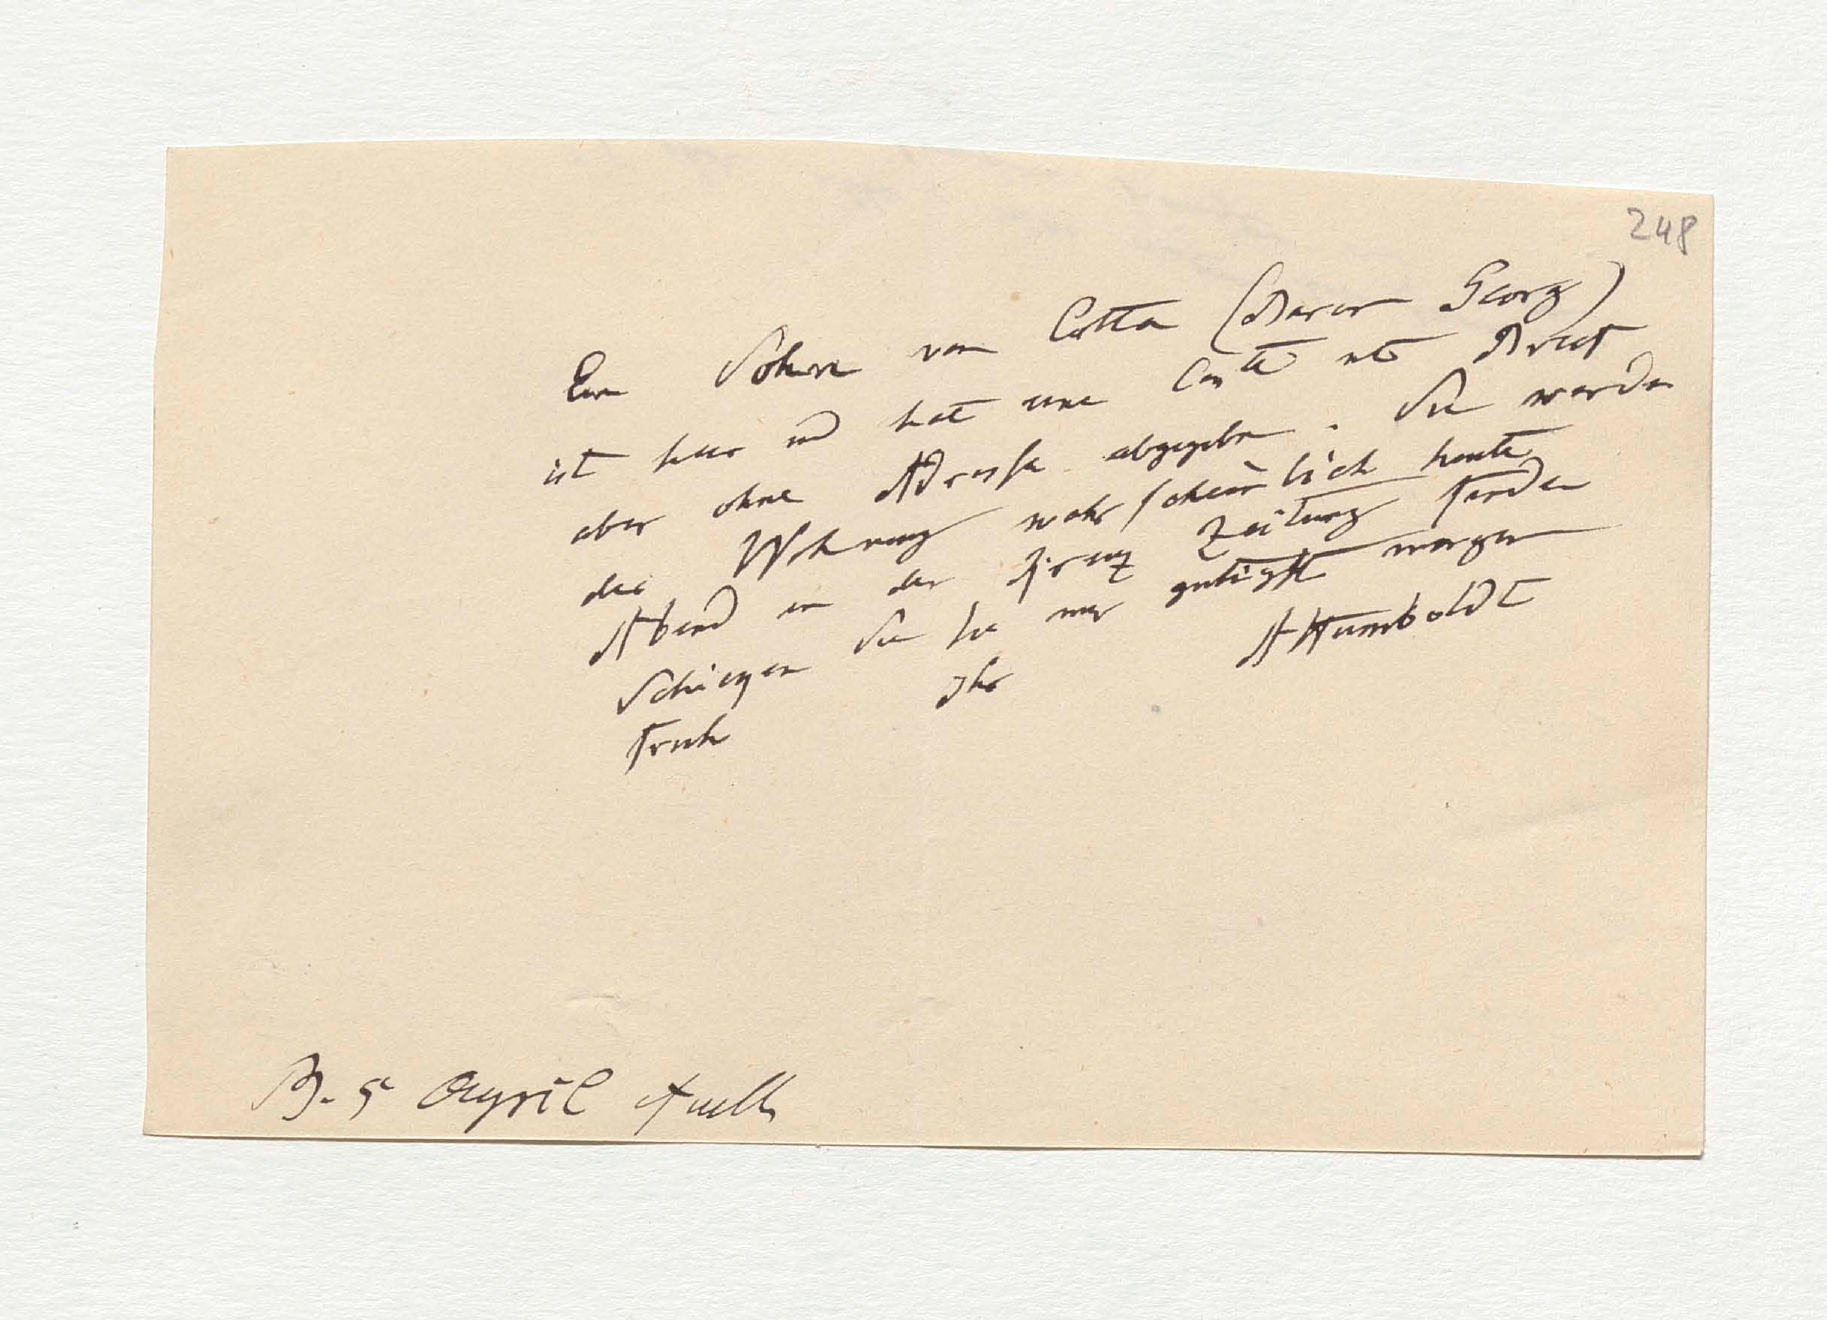 248
Ein Sohn von Cotta (Baron Georg)
ist hier und hat eine Carte mit Brief
aber ohne Adresse abgegeben. Sie werden
die Wohnung wahrscheinlich heute
Abend in der Kreuz Zeitung finden
Schicken Sie sie mir gütigst morgen
früh Ihr AHumboldt
B. 5 April